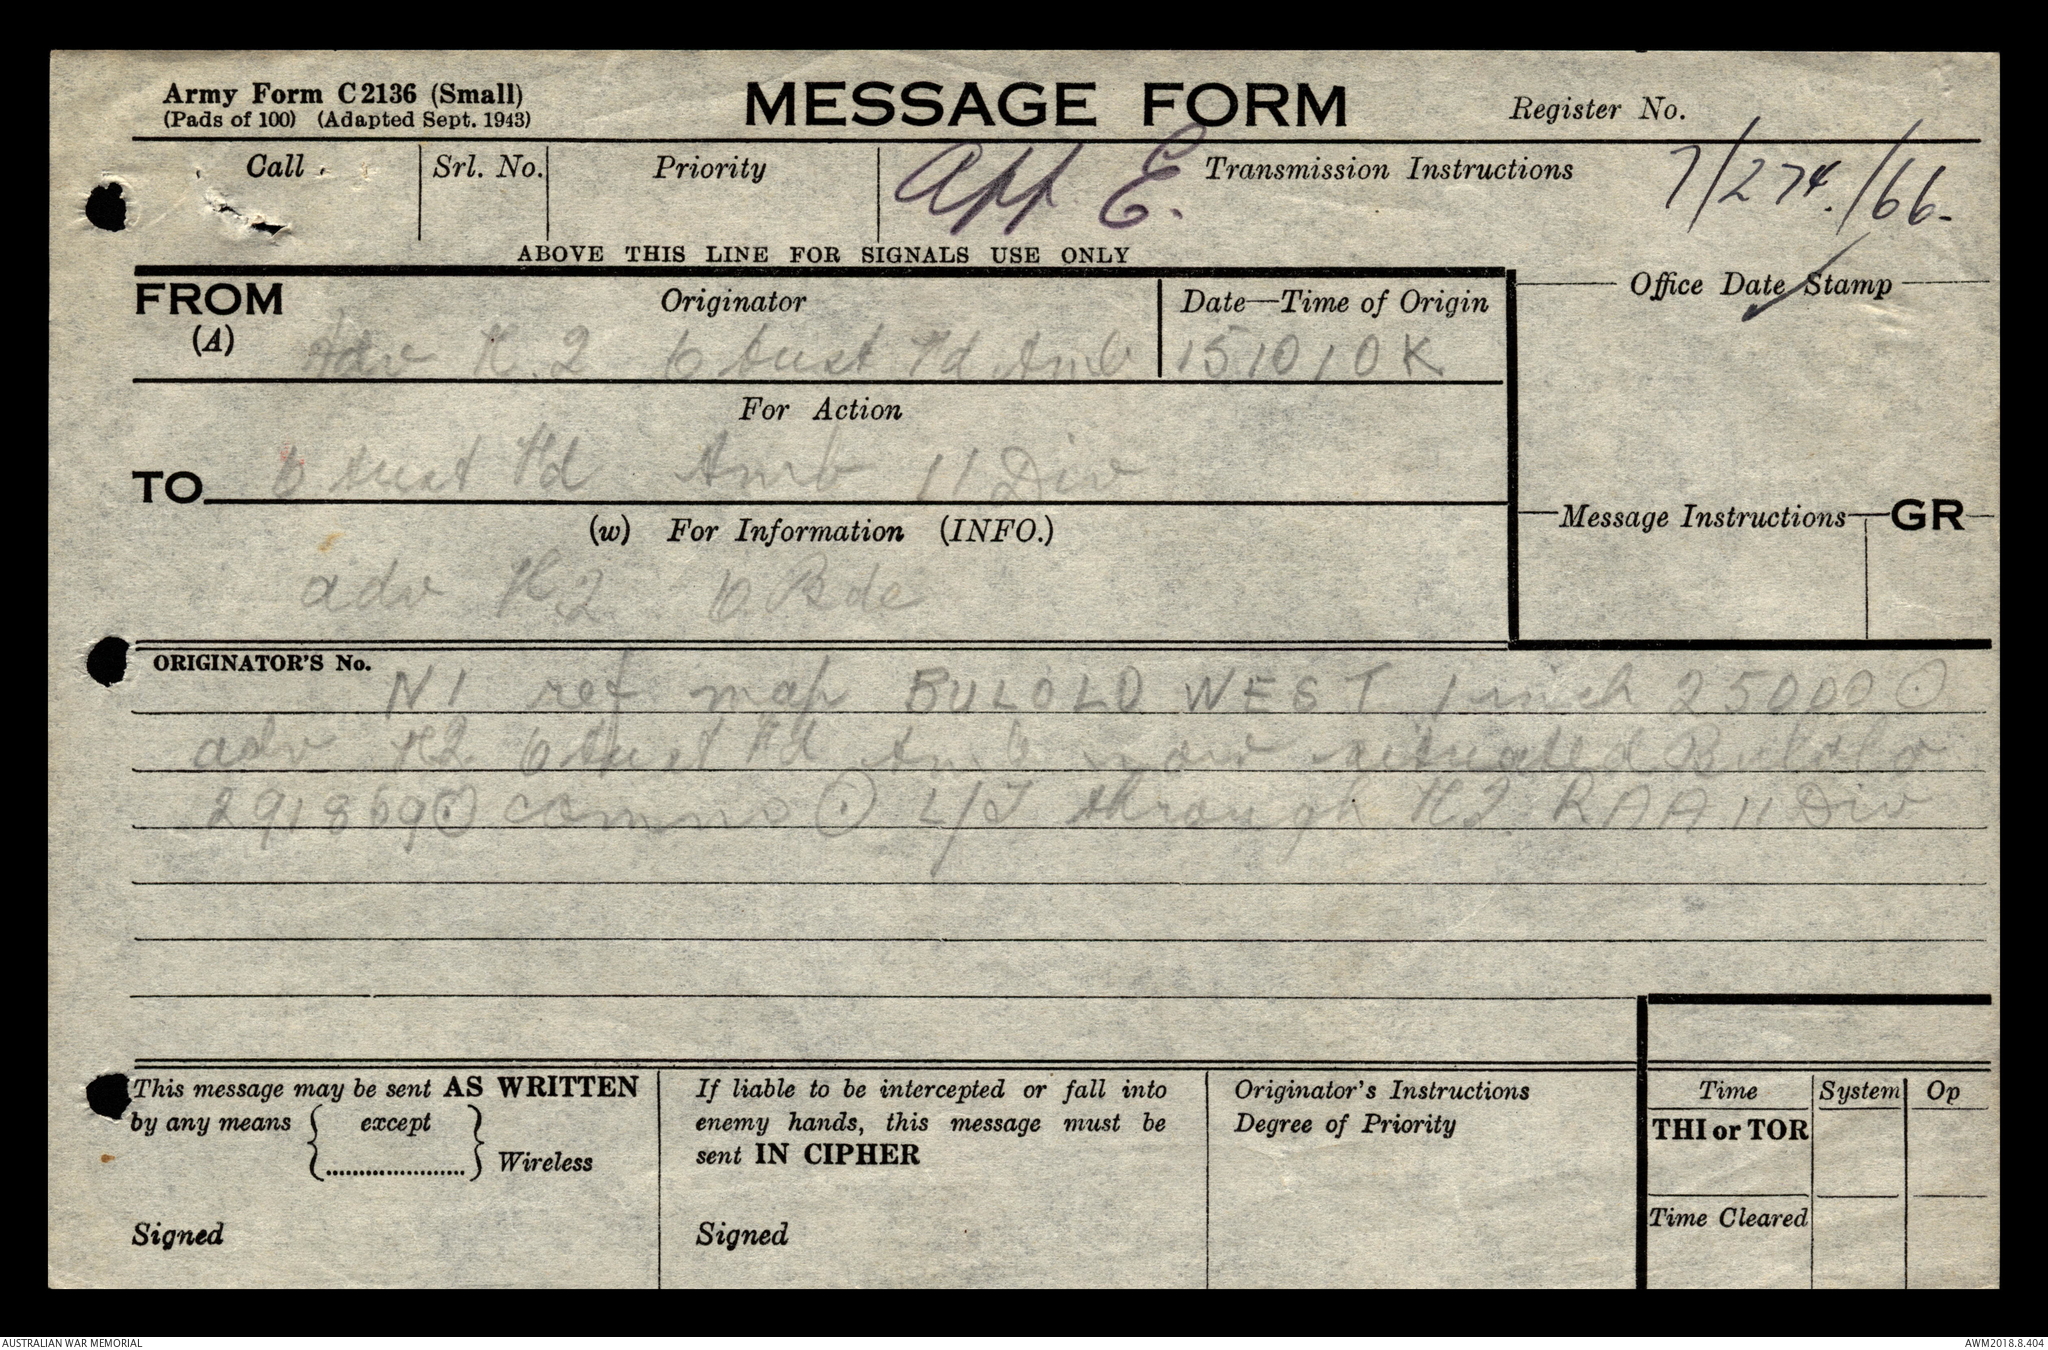 Army Form C 2136 (Small)
(Pads of 100) (Adapted Sept. 1943)
MESSAGE FORM
Register No.
Call
Srl. No.
Priority
App E.
Transmission Instructions
7/274./66-
ABOVE THIS LINE FOR SIGNALS USE ONLY
FROM
(A)
Originator
Date—Time of Origin
Office Date Stamp
Adv H.2 6 Aust Fd Amb
151010K
For Action
TO
6 Aust Fd Amb 11 Div
(w) For Information (INFO.)
Message Instructions
GR
adv H2 6 Bde
ORIGINATOR'S No.
N1 ref map BULOLO WEST 1 inch 25000 ⊙
adv H2 6 Aust Fd Amb now situated Bulolo
291869 ⊙ comns ⊙ L/T through H2 RAA 11 Div
This message may be sent AS WRITTEN
by any means { except
...................... } Wireless
Signed
If liable to be intercepted or fall into
enemy hands, this message must be
sent IN CIPHER
Signed
Originator's Instructions
Degree of Priority
Time
System
Op
THI or TOR
Time Cleared
AUSTRALIAN WAR MEMORIAL
AWM2018.8.404